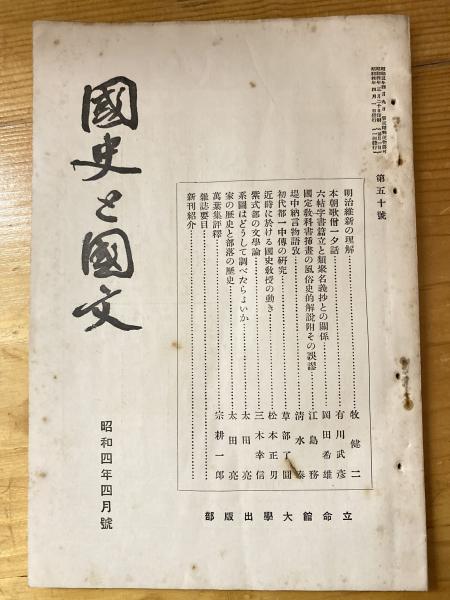 第五十號
明治維新の理解……牧健二
本朝歌僧一夕話……有川武彦
六帖字書篇立と類聚名義抄との關係……岡田希雄
國定敎科書揷畫の風俗史的解說附その誤謬……江島務
堤中納言物語攷……淸水泰
初代都一中傳の硏究……草部了圓
近時に於ける國史敎授の動き……松本正男
紫式部の文學論……三木幸信
系圖はどうして調べたらよいか……太田亮
家の歷史と部落の歷史……太田亮
萬葉集評釋……宗耕一郎
雜誌要目
新刊紹介
立命館大學出版部
國史と國文
昭和四年四月號